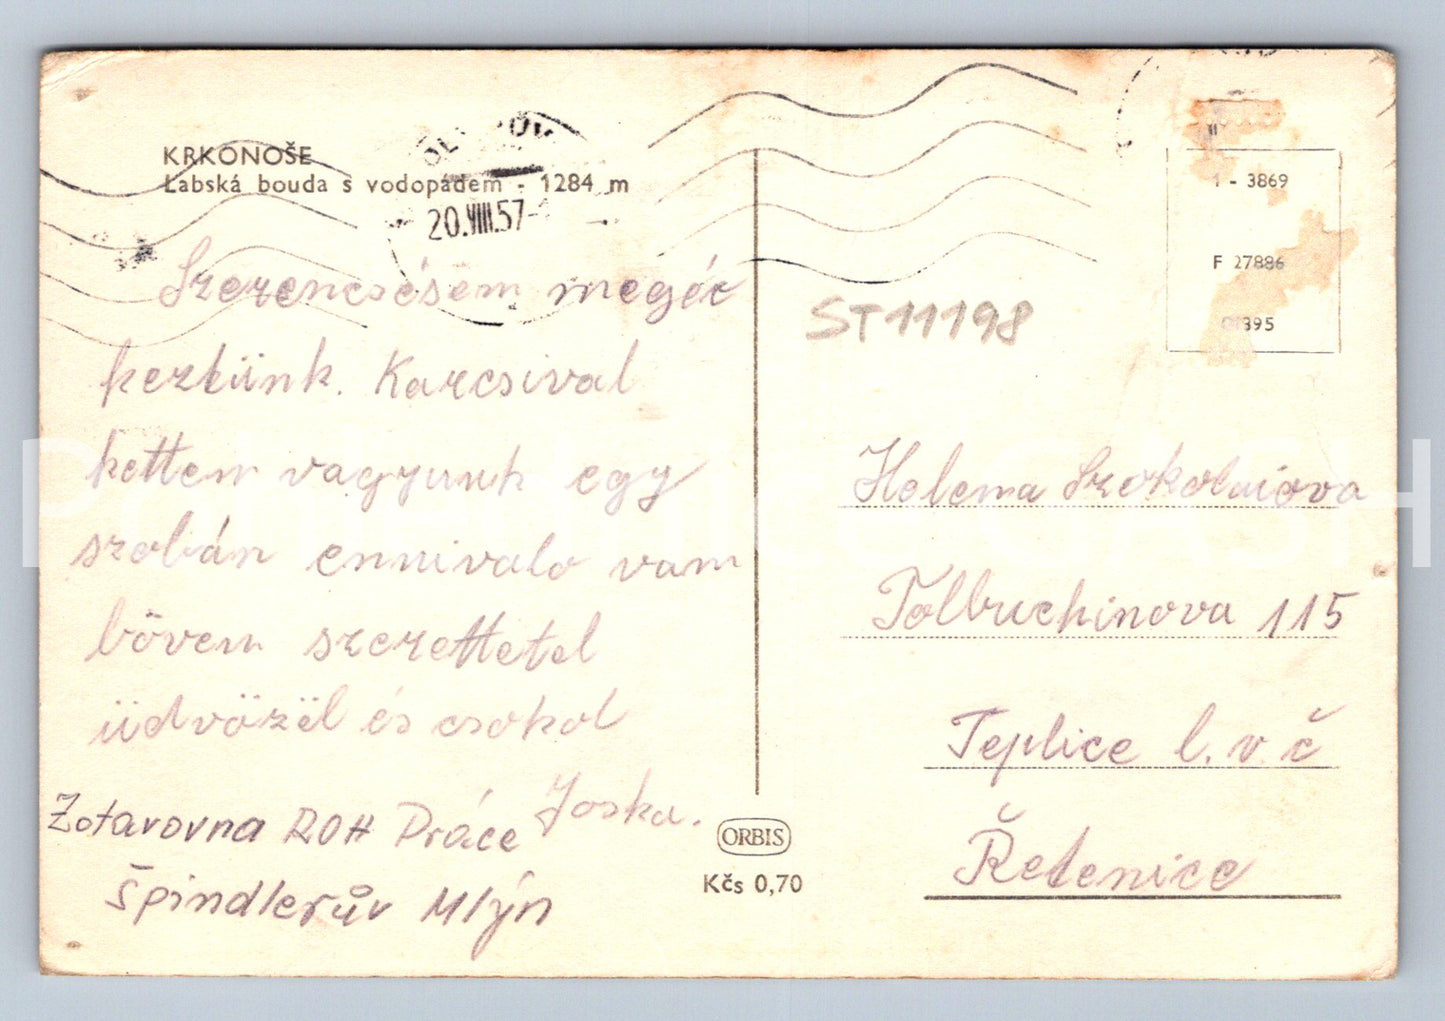 KRKONOŠE
Labská bouda s vodopádem - 1284 m
20.VIII.57
Szerencsésem megéc
keztünk. Karcsival
ketten vagyunk egy
szobán ennivalo vam
bövem szerettetel
üdvözël és csokol
Joska.
Zotavovna ROH Práce
Špindlerův Mlýn
ORBIS
Kčs 0,70
1 - 3869
F 27886
ST11198
Helema Szokolaiova
Tolbuchinova 115
Teplice l. v. č
Řetenice